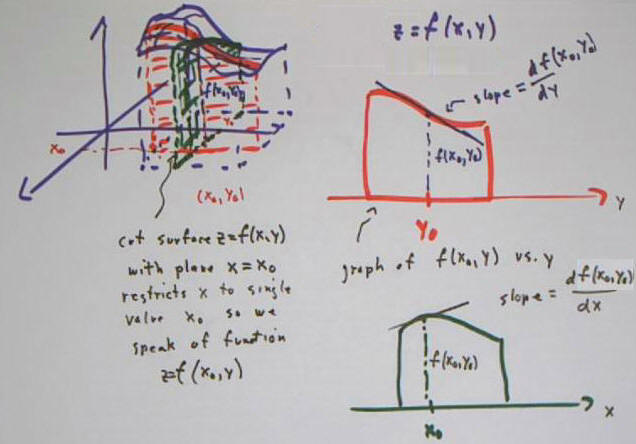 z = f(x,y)
f(x₀,y₀)
y₀
x₀
(x₀,y₀)
slope = df(x₀,y₀)/dy
f(x₀,y₀)
y
y₀
cut surface z=f(x,y)
with plane x=x₀
restricts x to single
value x₀ so we
speak of function
z=f(x₀,y)
graph of f(x₀,y) vs. y
slope = df(x₀,y₀)/dx
f(x₀,y₀)
x
x₀